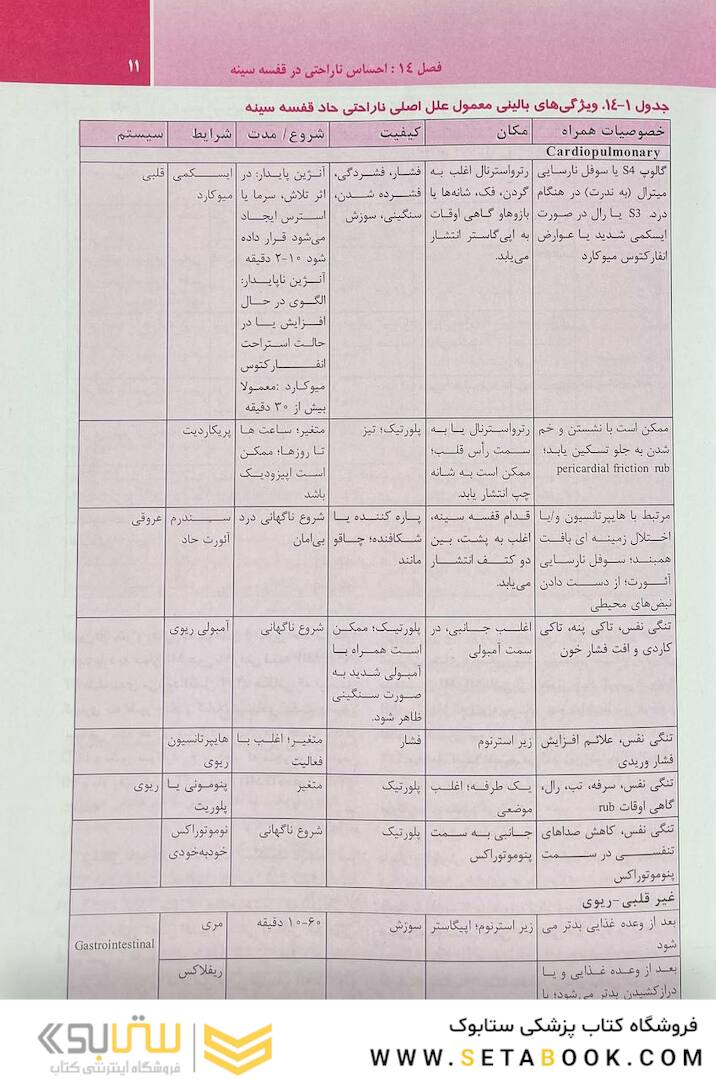 فصل ۱۴: احساس ناراحتی در قفسه سینه
۱۱
جدول ۱-۱۴. ویژگی‌های بالینی معمول علل اصلی ناراحتی حاد قفسه سینه
سیستم
شرایط
شروع/ مدت
کیفیت
مکان
خصوصیات همراه
Cardiopulmonary
قلبی
ایسکمی
میوکارد
آنژین پایدار: در
اثر تلاش، سرما یا
استرس ایجاد
می‌شود قرار داده
شود ۱۰-۲ دقیقه
آنژین ناپایدار:
الگوی در حال
افزایش یا در
حالت استراحت
انفارکتوس
میوکارد :معمولا
بیش از ۳۰ دقیقه
فشار، فشردگی،
فشرده شدن،
سنگینی، سوزش
رترواسترنال اغلب به
گردن، فک، شانه‌ها یا
بازوهاو گاهی اوقات
به اپی‌گاستر انتشار
می‌یابد.
گالوپ S4 یا سوفل نارسایی
میترال (به ندرت) در هنگام
درد. S3 یا رال در صورت
ایسکمی شدید یا عوارض
انفارکتوس میوکارد
پریکاردیت
متغیر؛ ساعت ها
تا روزها؛ ممکن
است اپیزودیک
باشد
پلورتیک؛ تیز
رترواسترنال یا به
سمت رأس قلب؛
ممکن است به شانه
چپ انتشار یابد.
ممکن است با نشستن و خم
شدن به جلو تسکین یابد؛
pericardial friction rub
عروقی
سندرم
آئورت حاد
شروع ناگهانی درد
بی‌امان
پاره کننده یا
شکافنده؛ چاقو
مانند
قدام قفسه سینه،
اغلب به پشت، بین
دو کتف انتشار
می‌یابد.
مرتبط با هایپرتانسیون و/یا
اختلال زمینه ای بافت
همبند؛ سوفل نارسایی
آئورت؛ از دست دادن
نبض‌های محیطی
آمبولی ریوی
شروع ناگهانی
پلورتیک؛ ممکن
است همراه با
آمبولی شدید به
صورت سنگینی
ظاهر شود.
اغلب جانبی، در
سمت آمبولی
تنگی نفس، تاکی پنه، تاکی
کاردی و افت فشار خون
هایپرتانسیون
ریوی
متغیر؛ اغلب با
فعالیت
فشار
زیر استرنوم
تنگی نفس، علائم افزایش
فشار وریدی
ریوی
پنومونی یا
پلوریت
متغیر
پلورتیک
یک طرفه؛ اغلب
موضعی
تنگی نفس، سرفه، تب، رال،
گاهی اوقات rub
نوموتوراکس
خودبه‌خودی
شروع ناگهانی
پلورتیک
جانبی به سمت
پنوموتوراکس
تنگی نفس، کاهش صداهای
تنفسی در سمت
پنوموتوراکس
غیر قلبی-ریوی
Gastrointestinal
مری
ریفلاکس
۱۰-۶۰ دقیقه
سوزش
زیر استرنوم؛ اپیگاستر
بعد از وعده غذایی بدتر می
شود
بعد از وعده غذایی و یا
درازکشیدن بدتر می‌شود؛ با
فروشگاه کتاب پزشکی ستابوک
WWW.SETABOOK.COM
ستابوک
فروشگاه اینترنتی کتاب